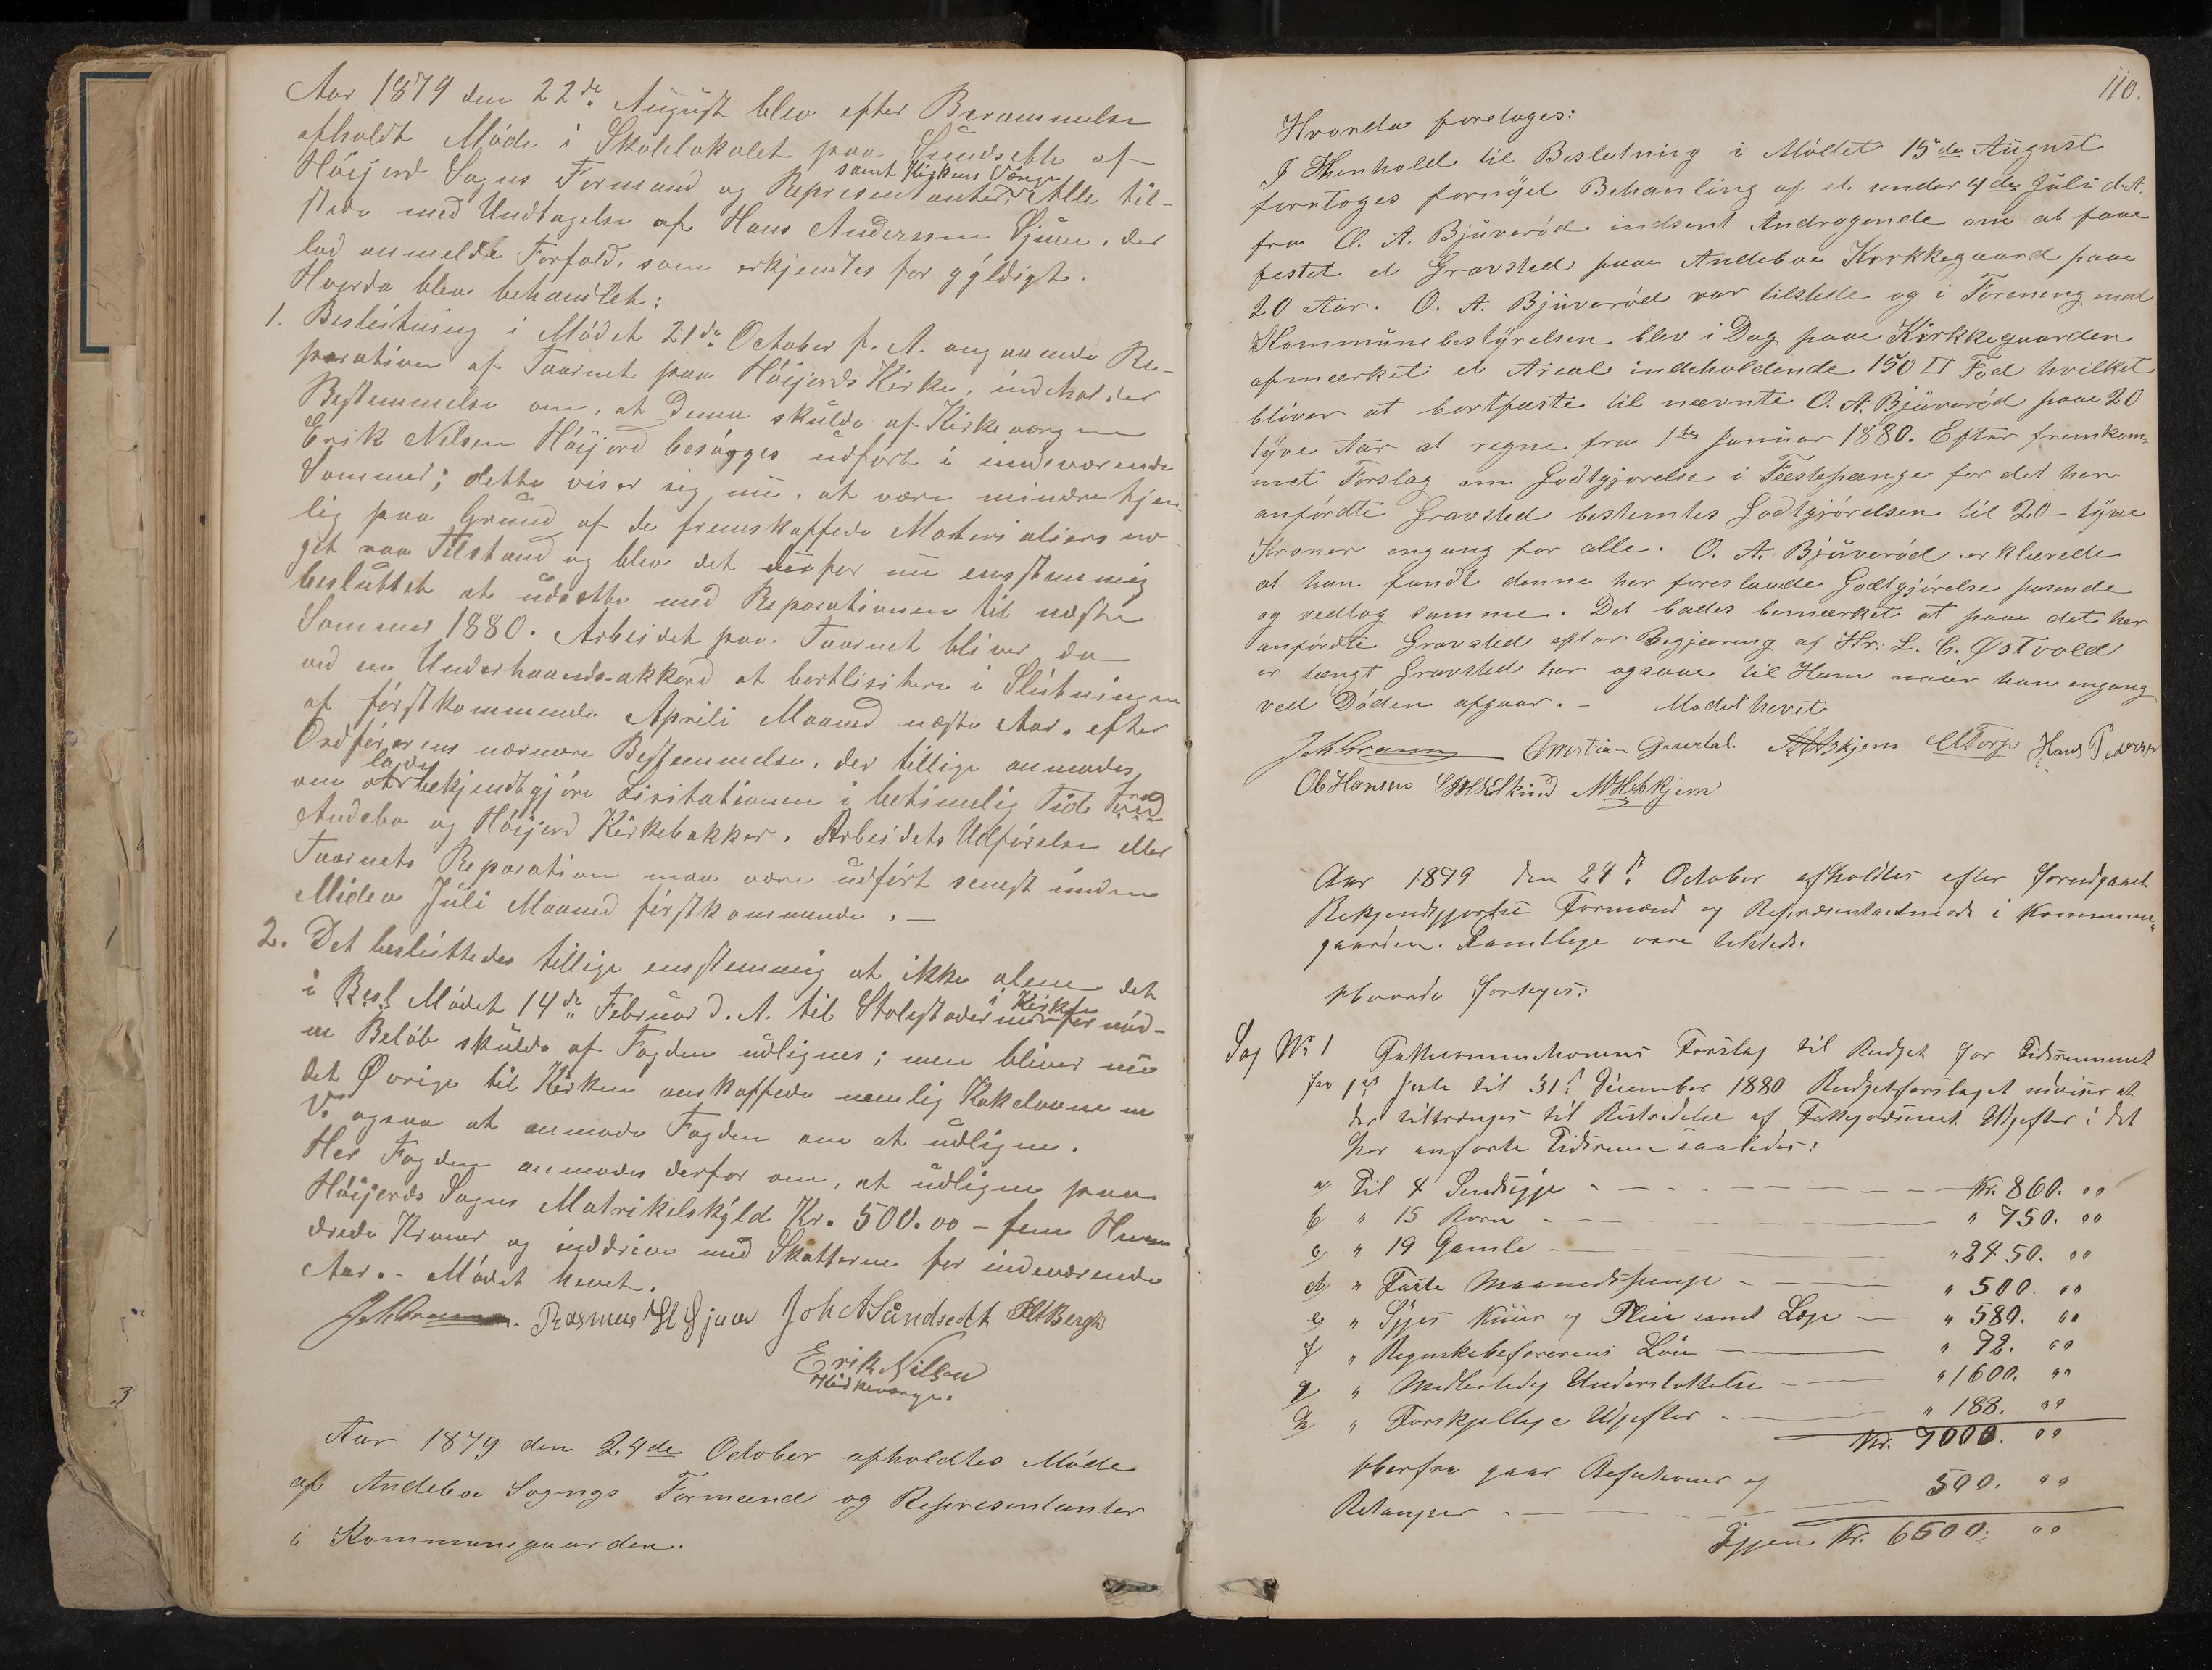 Aar 1879 den 22de August blev efter Berammelse
afholdt Møde i Skolelokalet paa Sundsette af
samt Kirkens Værge
Høijord Sogns Formænd og Repræsentanter. Alle til-
stede med Undtagelse af Hans Anderssen Gjein, der
lod anmeldt Forfald, som erkjendtes for gyldigt.
Hvorda blev behandlet:
1. Beslutning i Mødet 21de October f. A. angaaende Re-
paration af Taarnet paa Høijords Kirke, indeholder
Bestemmelse om, at Denne skulde af Kirkeværgen
Erik Nilsen Høijord besørges udført i indeværende
Sommer; dette viser sig nu, at være mindre tjen-
lig paa Grund af de fremskaffede Materialiers no-
get raa Tilstand og blev det derfor nu enstemmig
besluttet at udsætte med Reparationen til næste
Sommer 1880. Arbeidet paa Taarnet bliver da
ved en Underhaands-akkord at bortlisitere i Slutningen
af førstkommende Aprili Maaned næste Aar, efter
Ordførerens nærmere Bestemmelse, der tillige anmodes
lade
om at bekjendtgjøre Lisitationen i betimelig Tid fra
Andebo og Høijord Kirkebakker. Arbeidets Udførelse eller
Taarnets Reparation maa være udført senest inden
Midten Juli Maaned førstkommende. —
2. Det besluttedes tillige enstemmig at ikke alene det
i Kirken
i Besl Mødet 14de Februar d. A. til Stolestader fornød-
ne Beløb skulde af Fogden udlignes; men bliver nu
det Øvrige til Kirken anskaffede nemlig Kakelovnene
V. ogsaa at anmode Fogden om at udligne.
Her Fogden anmodes derfor om, at udligne paa
Høijords Sogns Matrikelskyld Kr. 500.00 – fem Hun-
drede Kroner og inddrive med Skatterne for indeværende
Aar. – Mødet hævet.
Rasmus H Gjein Joh A Sundsedt H Bergh
Erik Nilsen
Kirkeværge.
Aar 1879 den 24de October afholdtes Møde
af Andeboe Sogngs Formænd og Representanter
i Kommunegaarden.
110.
Hvorda foretoges:
I Henhold til Beslutning i Mødet 15de August
foretoges fornyet Behanling af et under 4de Juli d. A.
fra O. A. Bjuverød indsent Andragende om at faae
festet et Gravsted paae Andeboe Kirkkegaard paae
20 Aar. O. A. Bjuverød var tilstede og i Forening med
Kommunebestyrelsen blev i Dag paae Kirkkegaarden
afmærket et Areal indeholdende 150 □ Fod hvilket
bliver at bortfæste til nævnte O. A. Bjuverød paae 20
tyve Aar at regne fra 1ste Januar 1880. Efter fremkom-
met Forslag om Godtgjørelse i Fæstepænge for det her
anførdte Gravsted bestemtes Godtgjørelsen til 20 – tyve
Kroner engang for alle. O. A. Bjuverød erklærede
at han fandt denne her foreslaaede Godtgjørelse pasende
og vedtog samme. Det bades bemærket at paae det her
anførdte Gravsted efter Begjæring af Hr. L. C. Østvold
er længt Gravsted her ogsaae til Ham naaer han engang
ved Døden afgaar. – Mødet hævet
Christian Gravdal. A Askjem C Torp Hans Pedersen
Ole Hansen M H Askjem
Aar 1879 den 24de October afholdtes efter forudgaaet
Bekjendtgjørelse Formænd og Repræsentantmøde i Kommune-
gaarden. Samtlige vare tilstede.
Hvorda foretoges:
Sag No 1 Fattiommissionens Forslag til Budget for Tidsrummet
fra 1ste Juli til 31te December 1880 Budgetforslaget udviser at
der tiltrænges til Bestridelse af Fattigvæsenets Udgifter i det
her anførte Tidsrum saaledes:
a, Til 4 Sindsyge Kr. 860. 00
b, " 15 Børn " 750. 00
c, " 19 Gamle " 2450. 00
d, " Faste Maanedspenge " 500. 00
e, " Syges Kuur og Pleie samt Læge " 580. 00
f, " Regnskabsførerens Løn " 72. 00
g, " Midlertidig Understøttelse " 1600. 00
h, " Forskjellige Udgifter " 188. 00
Kr. 7000. 00
Herfra gaar Refusioner og
Restancer 500. 00
Igjen Kr. 6500. 00